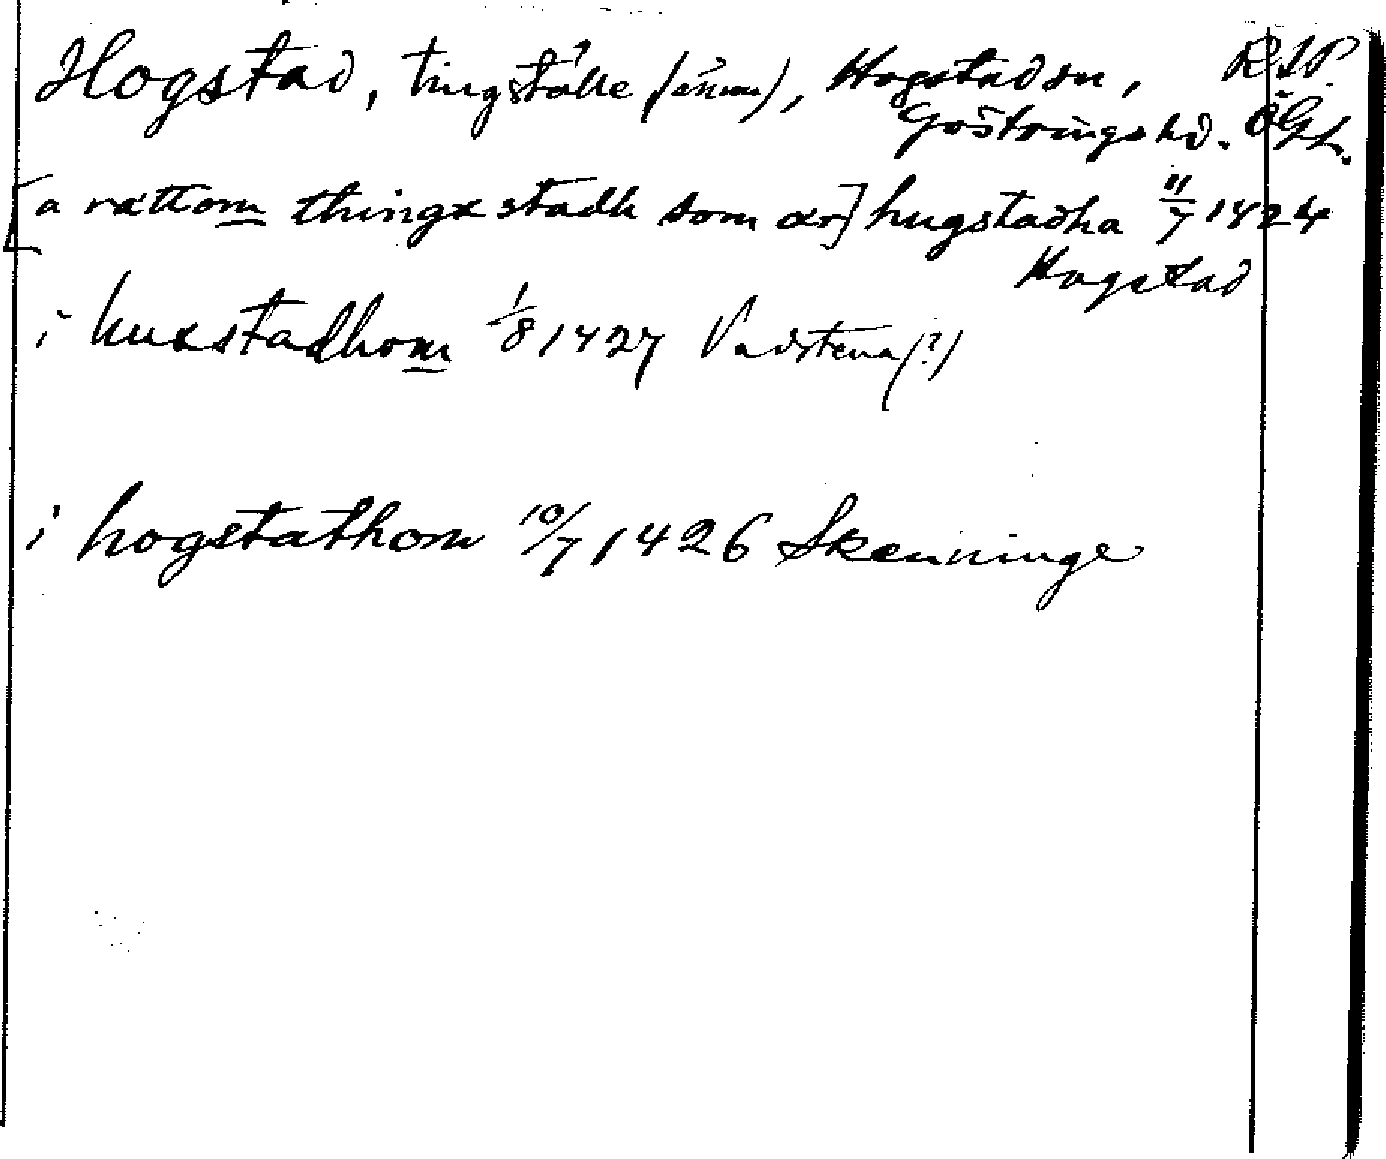 Hogstad, tingställe (änm), Hogstad sn, RAP.
Göstrings hd. ÖGL.
[a rættom thingxstadh som ær] hugstadha 11/7 1424
Hogstad
i huxstadhom 1/8 1427 Vadstena (?)
i hogstathom 10/7 1426 Skenninge